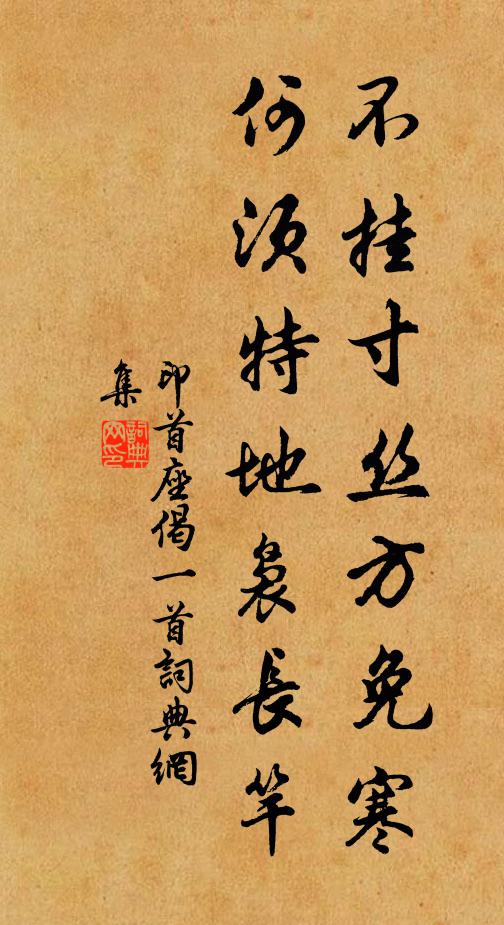 不挂寸丝方免寒
何须特地袅長竿
印首座偈一首詞典網
集
詞典網印